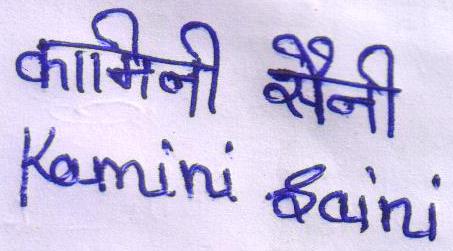 कामिनी सैनी
Kamini Saini